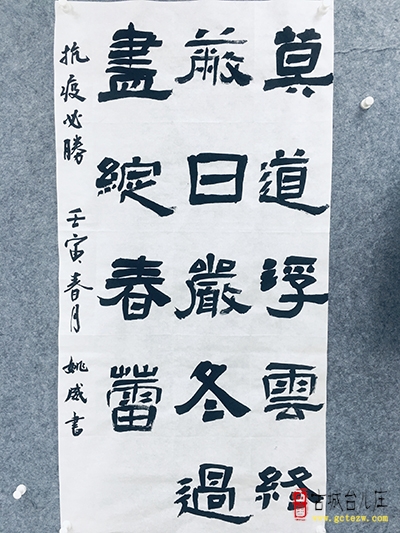 莫道浮雲終
蔽日嚴冬過
盡綻春蕾
抗疫必勝 壬寅春月 姚成書
古城台儿庄
www.gctezw.com